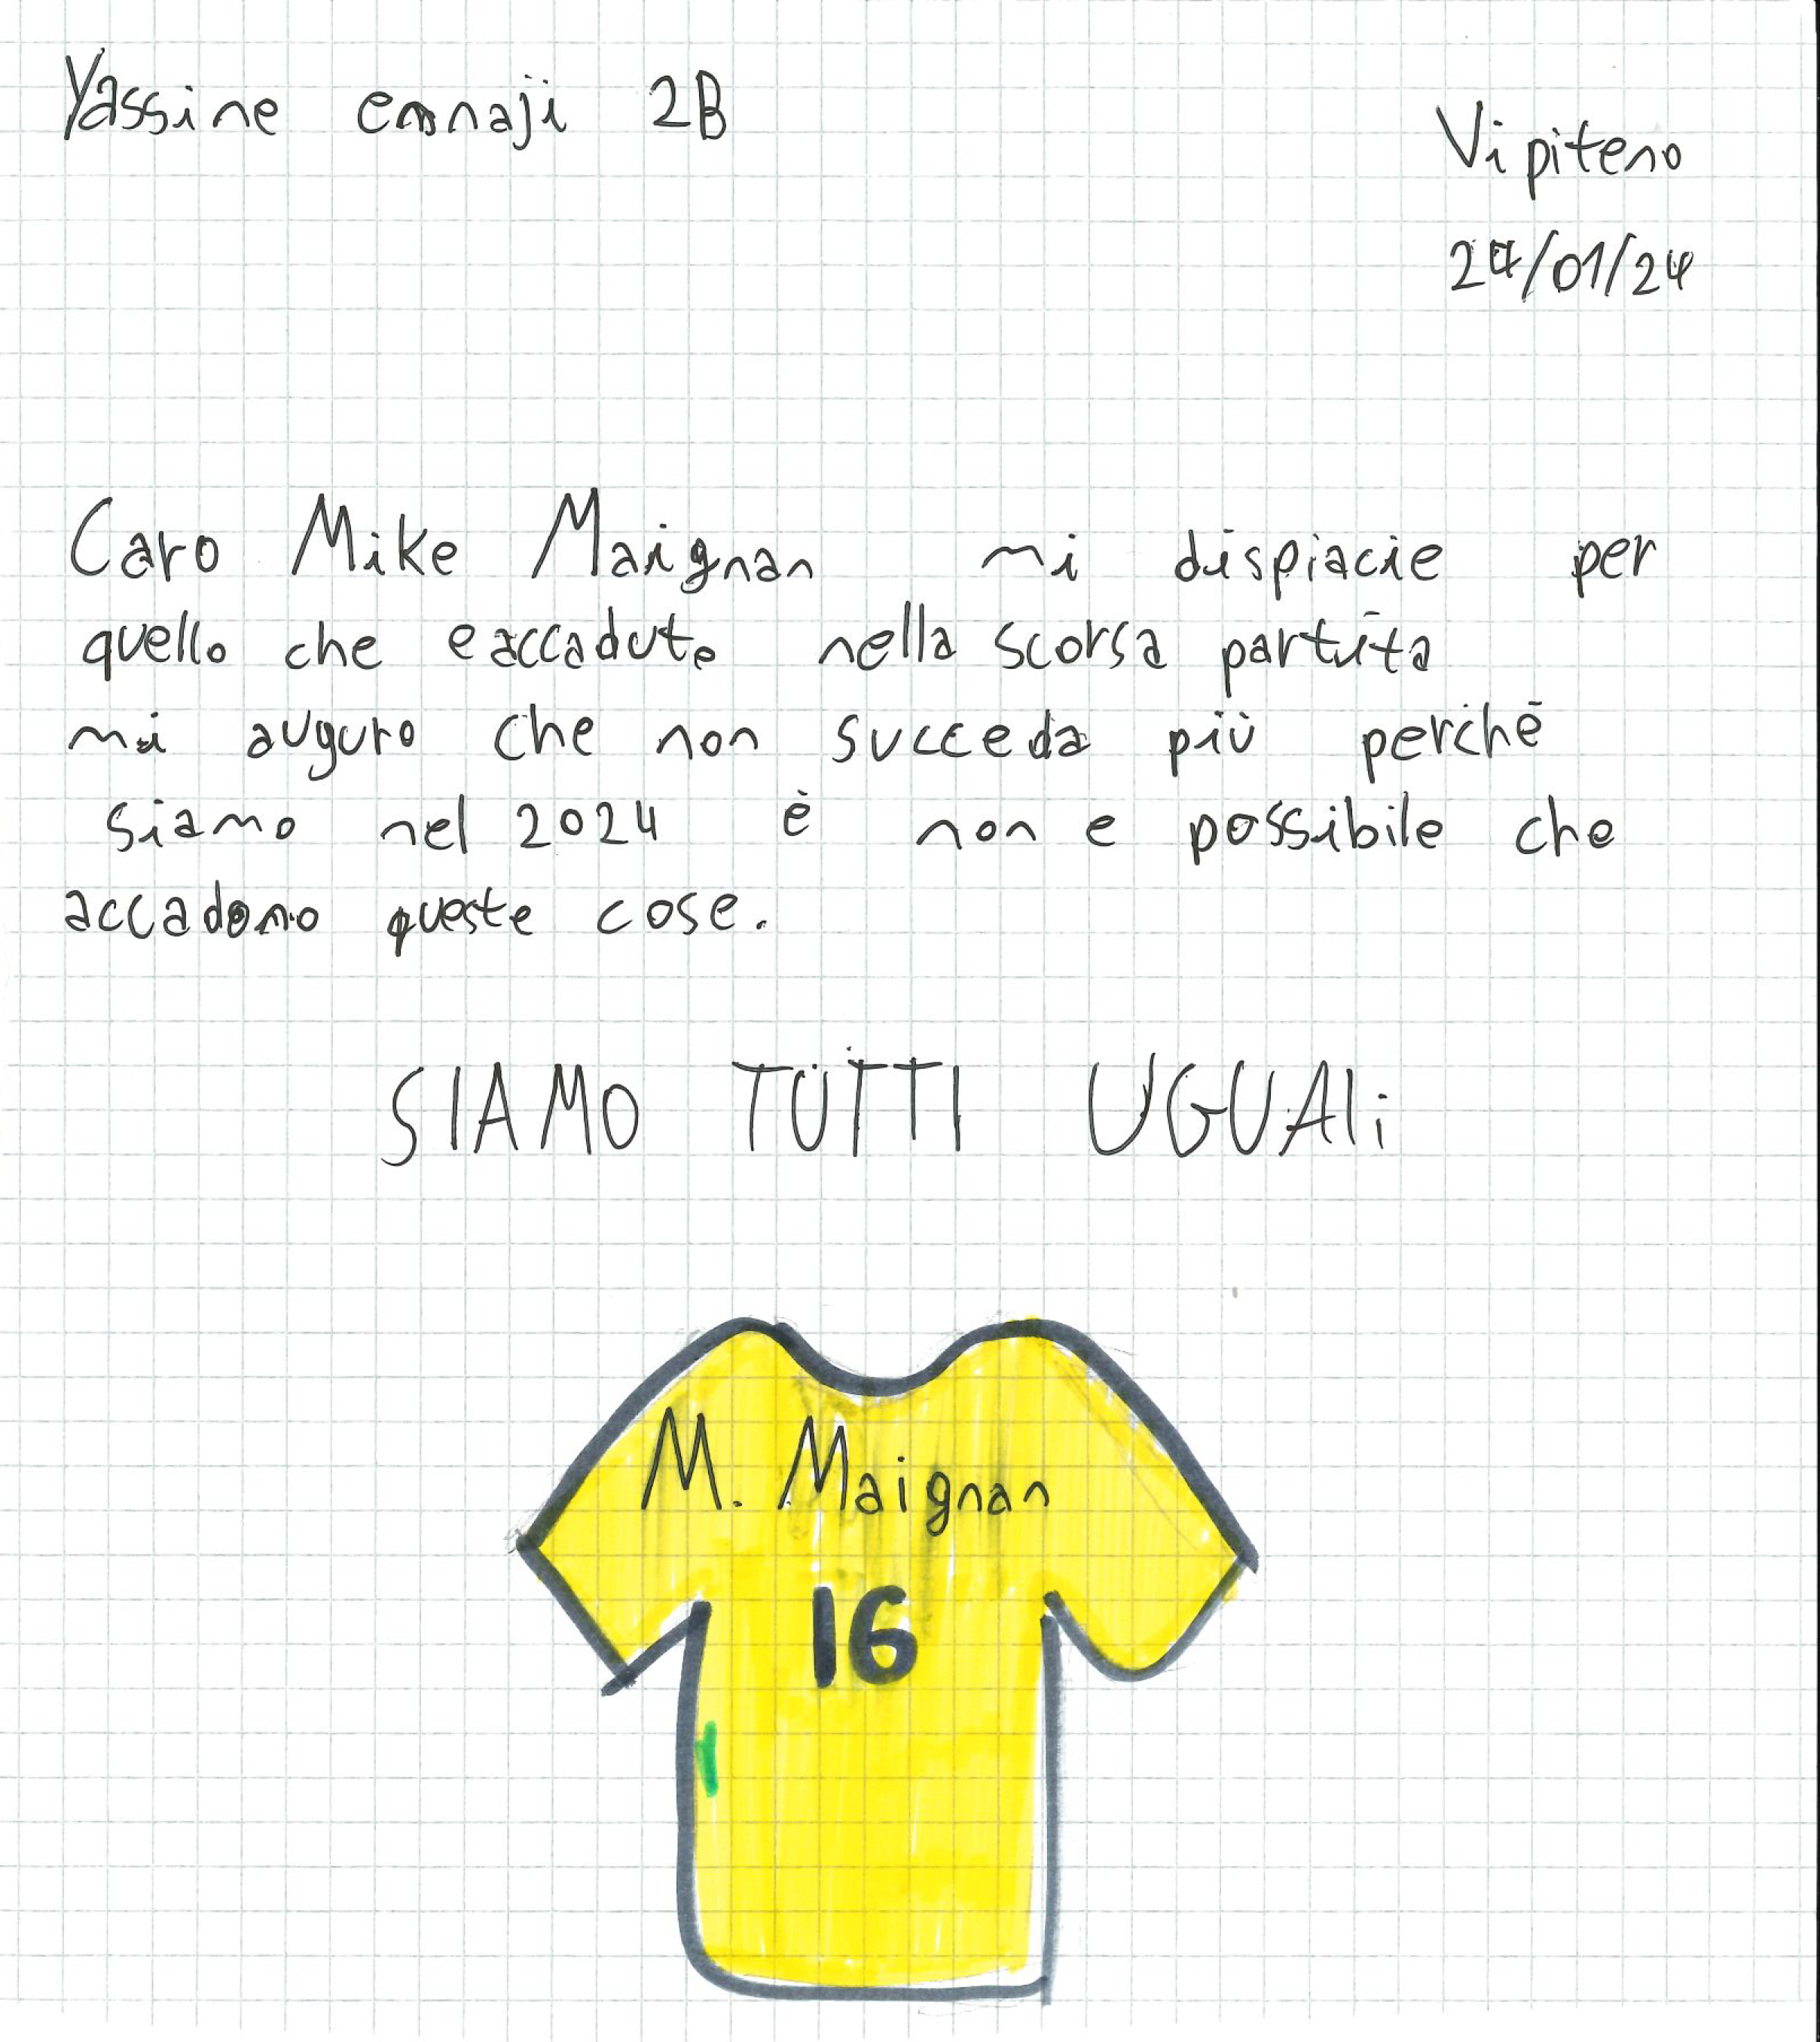 Yassine ennaji 2B
Vipiteno
24/01/24
Caro Mike Maignan mi dispiacie per
quello che e accaduto nella scorsa partita
mi auguro che non succeda più perché
siamo nel 2024 è non e possibile che
accadono queste cose.
SIAMO TUTTI UGUALi
M. Maignan
16